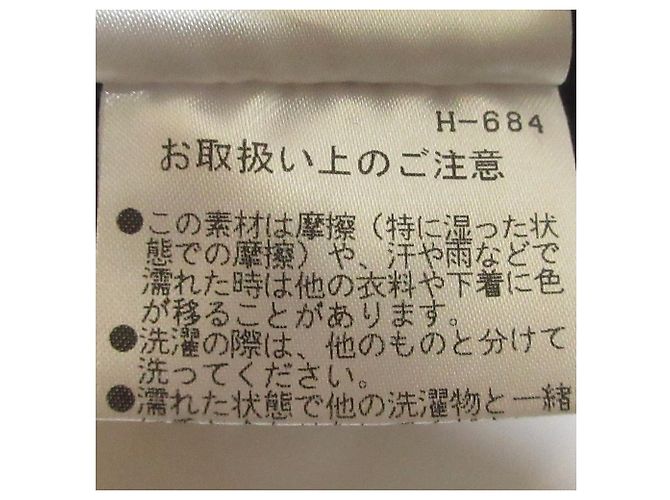 H-684
お取扱い上のご注意
●この素材は摩擦（特に湿った状
態での摩擦）や、汗や雨などで
濡れた時は他の衣料や下着に色
が移ることがあります。
●洗濯の際は、他のものと分けて
洗ってください。
●濡れた状態で他の洗濯物と一緒